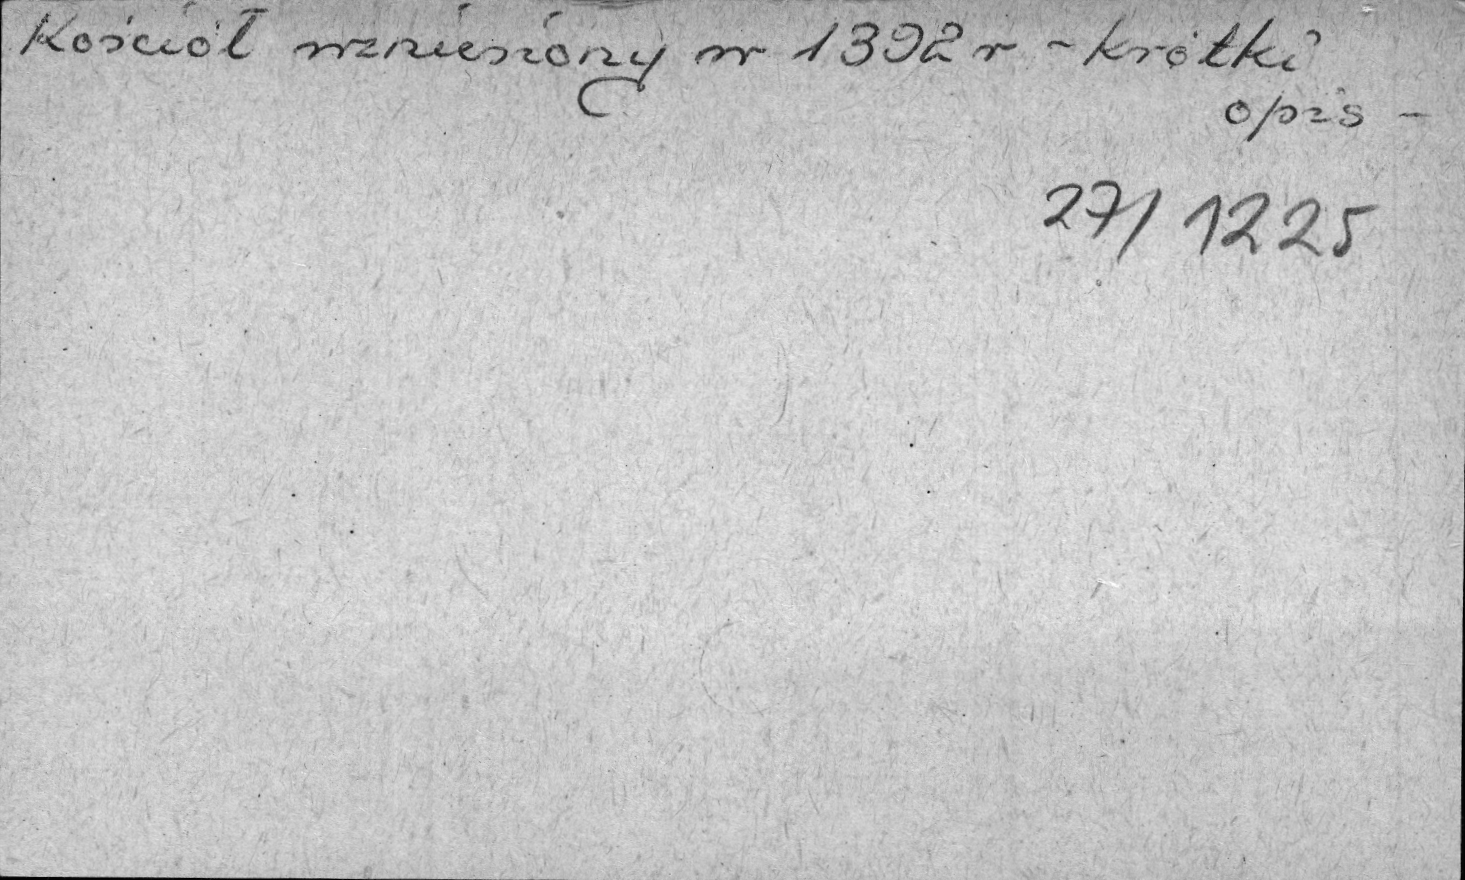 Kościół wzniesiony w 1392 r - krótki
opis -
27/1225